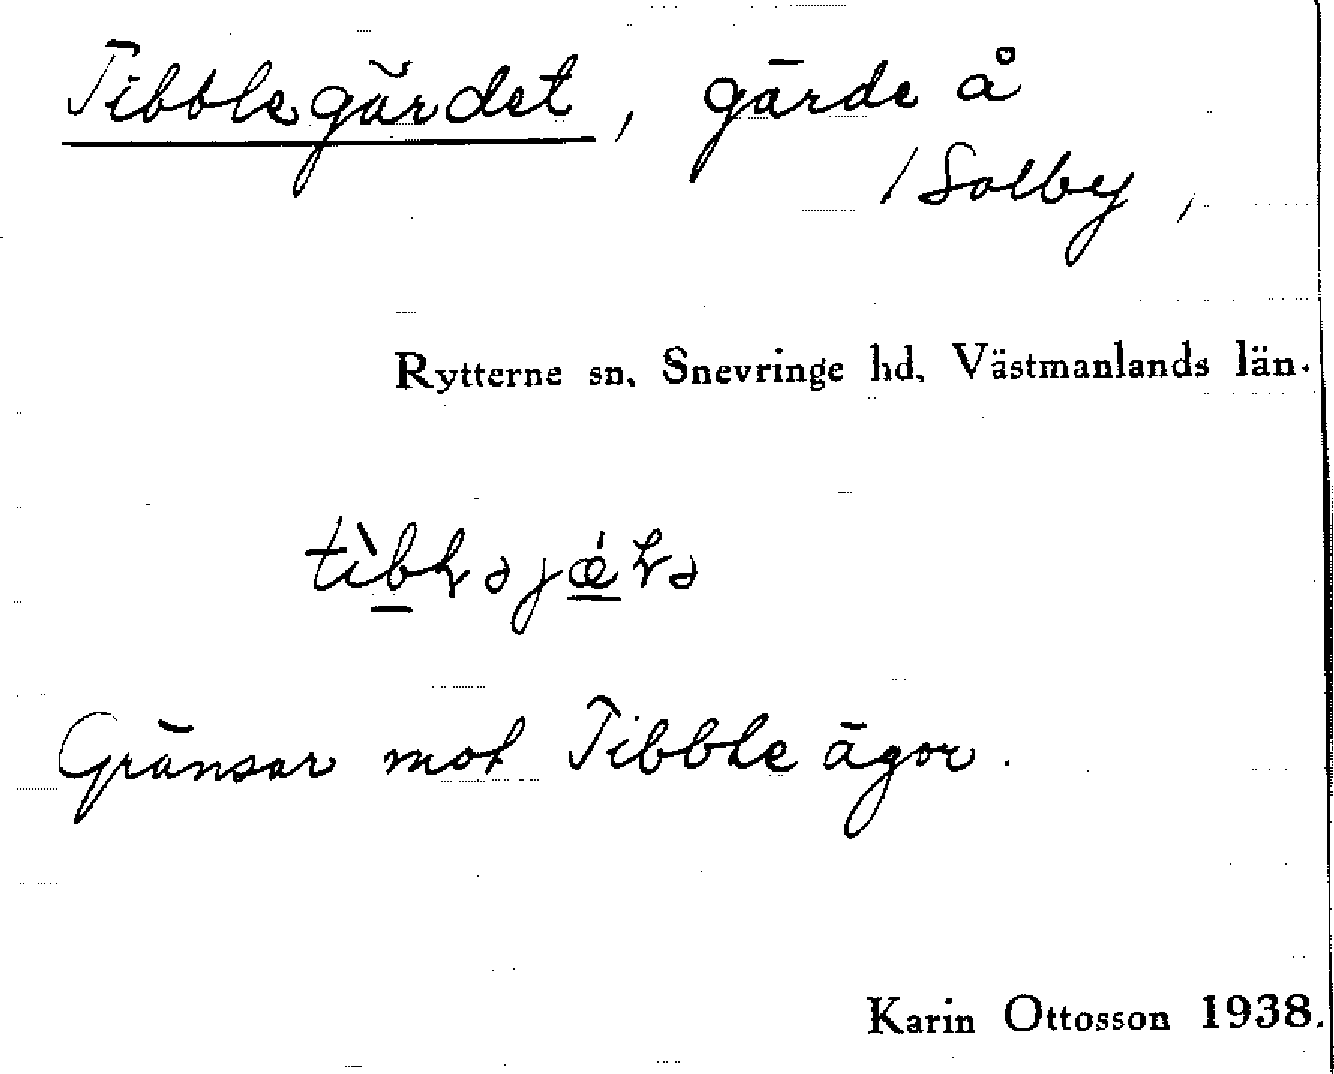 Tibblegärdet, gärde å
/ Solby,
Rytterne sn, Snevringe hd, Västmanlands län.
Gränsar mot Tibble ägor.
Karin Ottosson 1938.